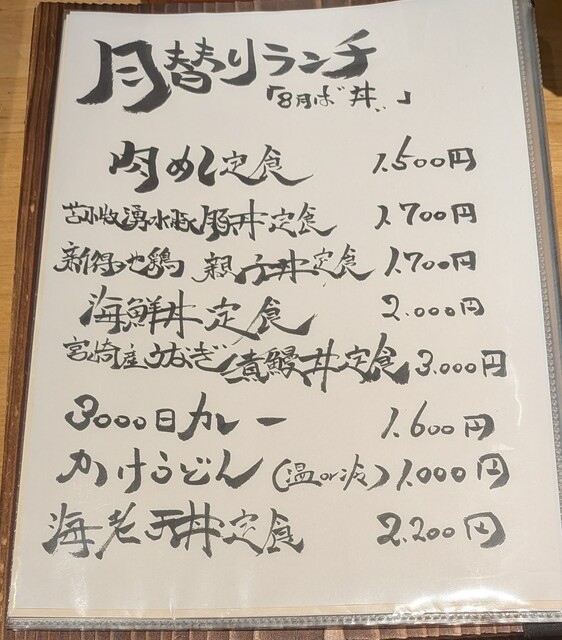 月替りランチ
「8月は゛丼、」
肉めし定食 1,500円
苫小牧湧水豚 豚丼定食 1,700円
新得地鶏 親子丼定食 1,700円
海鮮丼定食 2,000円
宮崎産うなぎ 煮鰻丼定食 3,000円
3000日カレー 1,600円
かけうどん(温or冷) 1,000円
海老天丼定食 2,200円